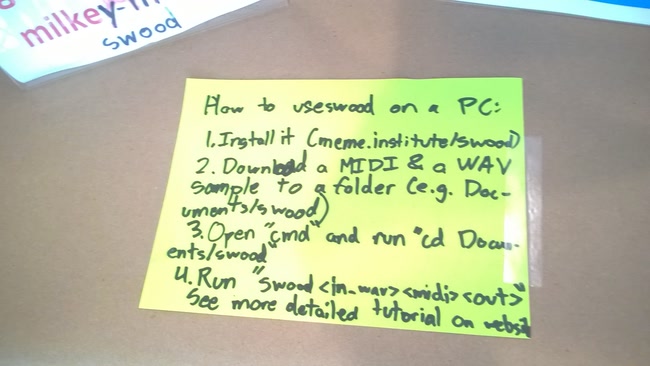 milkey-m
swood
How to use swood on a PC:
1. Install it (meme.institute/swood)
2. Download a MIDI & a WAV
sample to a folder (e.g. Doc-
uments/swood)
3. Open "cmd" and run "cd Docum-
ents/swood"
4. Run "swood <in_wav> <midi> <out>"
See more detailed tutorial on websit